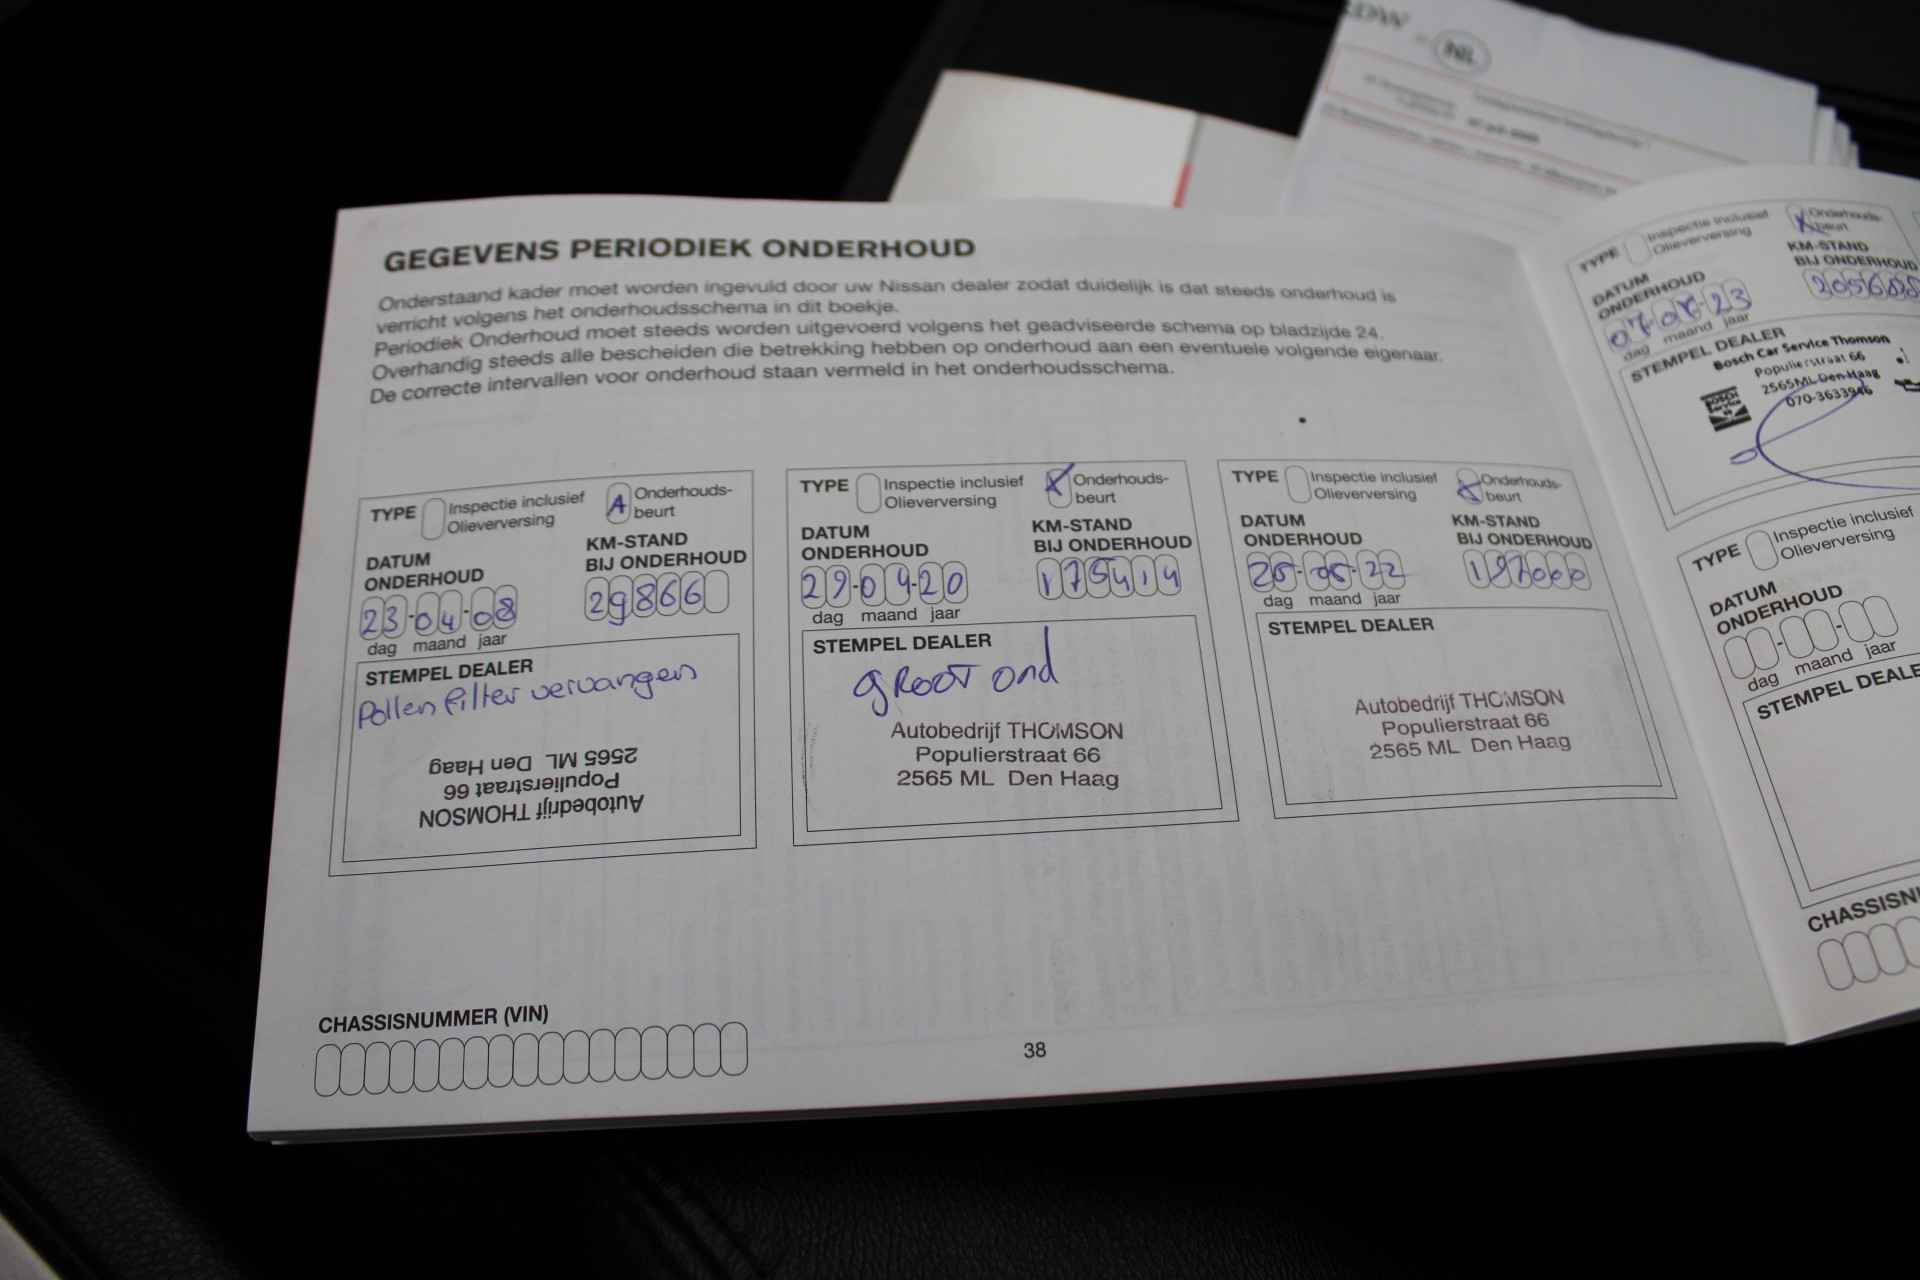 NL
GEGEVENS PERIODIEK ONDERHOUD
Onderstaand kader moet worden ingevuld door uw Nissan dealer zodat duidelijk is dat steeds onderhoud is
verricht volgens het onderhoudsschema in dit boekje.
Periodiek Onderhoud moet steeds worden uitgevoerd volgens het geadviseerde schema op bladzijde 24.
Overhandig steeds alle bescheiden die betrekking hebben op onderhoud aan een eventuele volgende eigenaar.
De correcte intervallen voor onderhoud staan vermeld in het onderhoudsschema.
TYPE Inspectie inclusief Olieverversing A Onderhouds-
beurt
DATUM
ONDERHOUD
23-04-08
dag maand jaar
KM-STAND
BIJ ONDERHOUD
29866
STEMPEL DEALER
Pollenfilter vervangen
Autobedrijf THOMSON
Populierstraat 66
2565 ML Den Haag
TYPE Inspectie inclusief Olieverversing X Onderhouds-
beurt
DATUM
ONDERHOUD
29-04-20
dag maand jaar
KM-STAND
BIJ ONDERHOUD
175414
STEMPEL DEALER
gROOT ond
Autobedrijf THOMSON
Populierstraat 66
2565 ML Den Haag
TYPE Inspectie inclusief Olieverversing X Onderhouds-
beurt
DATUM
ONDERHOUD
dag maand jaar
KM-STAND
BIJ ONDERHOUD
197000
STEMPEL DEALER
Autobedrijf THOMSON
Populierstraat 66
2565 ML Den Haag
CHASSISNUMMER (VIN)
38
TYPE Inspectie inclusief Olieverversing X Onderhouds-
beurt
DATUM
ONDERHOUD
dag maand jaar
KM-STAND
BIJ ONDERHOUD
STEMPEL DEALER
Bosch Car Service Thomson
Populierstraat 66
2565ML Den Haag
070-3633946
TYPE Inspectie inclusief
Olieverversing
DATUM
ONDERHOUD
dag maand jaar
STEMPEL DEALE
CHASSISN